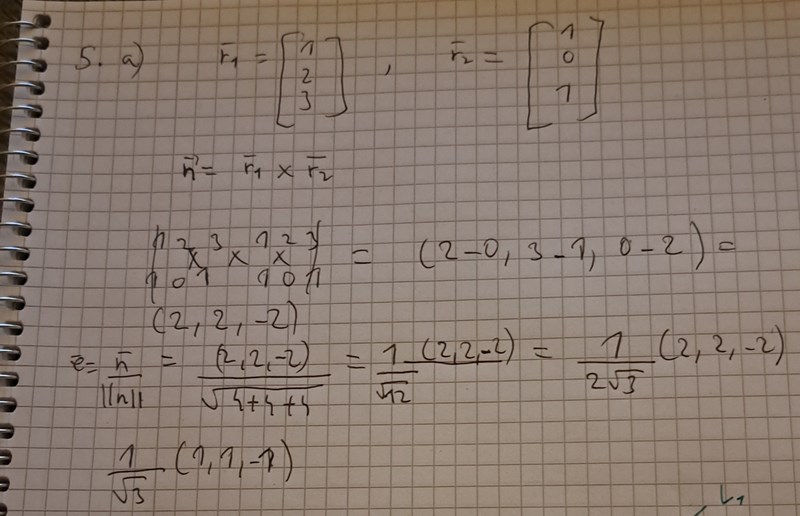 5. a) r̄₁ = [1 2 3] , r̄₂ = [1 0 1]
n̄ = r̄₁ × r̄₂
|1 2 3 1 2 3|
|1 0 1 1 0 1| = (2-0, 3-1, 0-2) =
(2, 2, -2)
e = n̄/||n|| = (2, 2, -2)/√4+4+4 = 1/√12 (2, 2, -2) = 1/2√3 (2, 2, -2)
1/√3 (1, 1, -1)
L₁